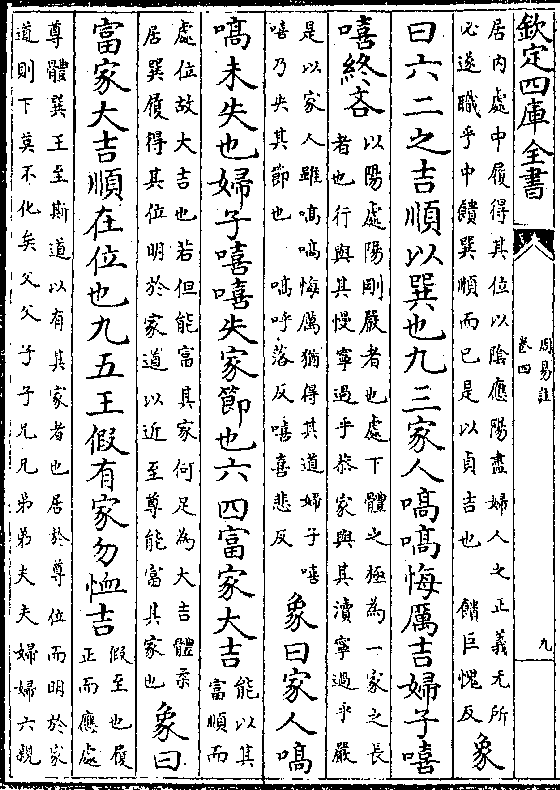 欽定四庫全書
周易註
卷四
九
居内處中履得其位以陰應陽盡婦人之正義无所
必遂職乎中饋巽順而已是以貞吉也 饋巨愧反
象
曰六二之吉順以巽也九三家人嗃嗃悔厲吉婦子嘻
嘻終吝
以陽處陽剛嚴者也處下體之極為一家之長
者也行與其慢寧過乎恭家與其瀆寧過乎嚴
是以家人雖嗃嗃悔厲猶得其道婦子嘻
嘻乃失其節也 嗃呼落反嘻喜悲反
象曰家人嗃
嗃未失也婦子嘻嘻失家節也六四富家大吉
能以其
富順而
處位故大吉也若但能富其家何足為大吉體柔
居巽履得其位明於家道以近至尊能富其家也
象曰
富家大吉順在位也九五王假有家勿恤吉
假至也履
正而應處
尊體巽王至斯道以有其家者也居於尊位而明於家
道則下莫不化矣父父子子兄兄弟弟夫夫婦婦六親